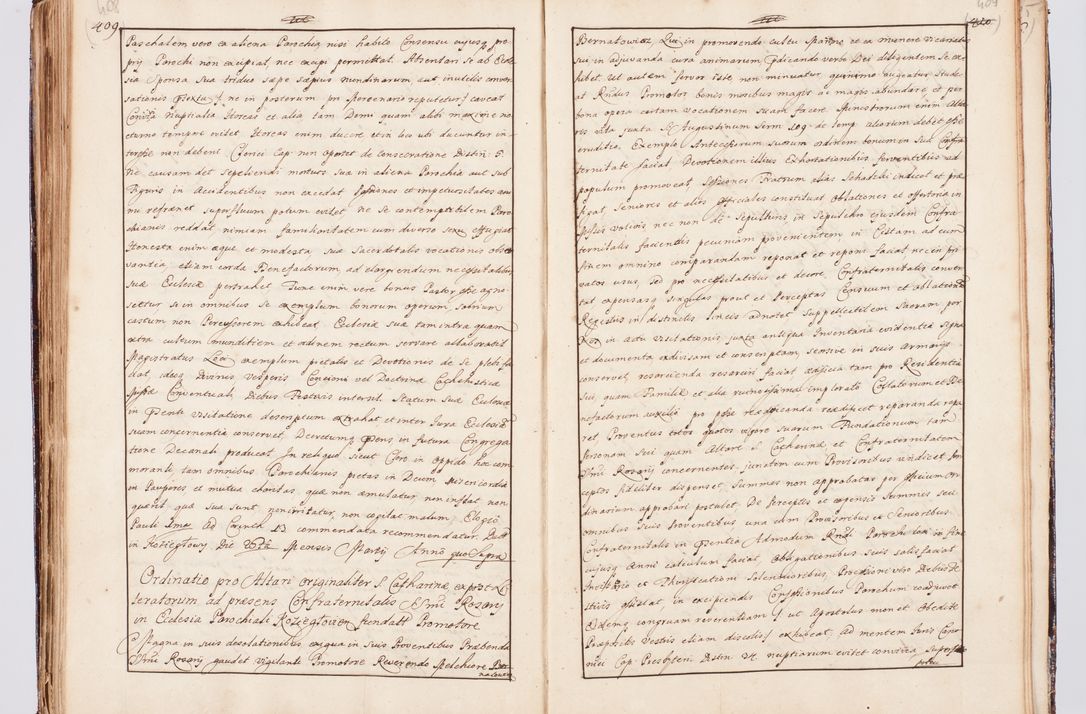 409
Paschalem vero ex aliena Parochia nisi habito Consensu cujusq pro
prij Parochi non excipiat, nec excipi permittat. Absentari se ab Eccle
sia Sponsa sua triduo sæpe sæpius nundinarum aut inutilis conver
sationis prætextu ne in posterum pro Mercenario reputetur caveat
Convivia Nuptialia Choreas et alia tam Domi quam alibi maxime no
cturno tempore vitet, Choreas enim ducere et in loco ubi ducuntur in
teresse non debent. Clerici Cap: non oportet de consecratione Distin: 5.
Ne causam det sepeliendi mortuos sua in aliena Parochia aut sub
Figuris in Accidentibus non excedat passiones et impetuositates ani
mi refrænet superfluum potum evitet, ne se contemptibilem Paro
chianis reddat nimiam familiaritatem cum diverso sexu effugiat
Honesta enim æque et modesta, sua Sacerdotalis vocationis obser
vantia, etiam corda Benefactorum ad elargiendum necessitatibus
suæ Ecclesiæ pertrahet. Tunc enim vere bonus Pastor esse agno
scetur si in omnibus se exemplum bonorum operum sobrium
castum non Percussorem exhibeat, Ecclesiæ suæ tam intra quam
extra cultum munditiem et ordinem rectum servare allaborabit
Magistratus Loci exemplum pietatis et Devotionis de se plebi fa
ciat, ideoq Divinis Vesperis Concioni vel Doctrinæ Cathechisticæ
Conventual: Diebus Festivis intersit. Statum suæ Ecclesiæ
in præsenti visitatione descriptum extrahat et inter Jura Ecclesiæ
suam concernentia conservet, Decretumq præsens in futura Congrega
tione Decanali producat. In reliquo sicut Clero in oppido hoc com
moranti, tam omnibus Parochianis pietas in Deum Misericordia
in Pauperes et mutua charitas, quæ non æmulatur non inflat, non
quærit quæ sua sunt, non irritatur, non cogitat malum, Elogio
Pauli 1ma ad Corinth: 13 commendata recommendatur. Datt:
in Koziegłowy Die Mensis Martij Anno quo Supra
Ordinatio pro Altari originaliter S. Catharinæ ex post Li
teratorum ad præsens Confraternitatis SSmi Rosarij
in Ecclesia Parochiali Koziegłovien fundatt Promotore
Magna in suis desolationibus exigua in suis Proventibus Præbenda
SSmi Rosarij gaudet vigilanti Promotore Reverendo Melchiore Ber
natowicz
409
410
Bernatowicz, Qui in promovendo cultu Mariano et ex munere Vicariatus
sui in adjuvanda cura animarum prædicando verbo Dei diligentem se ex
hibet, vel autem fervor iste non minuatur, quinimo augeatur, stude
at Rndus Promotor bonis moribus magis ac magis abundare et per
bona opera certam vocationem suam facere, Ministrorum enim Alta
ris vita juxta S: Augustinum Serm: 109 de temp: Aliorum debet esse
eruditio. Exemplo Antecessorum suorum ordinem bonum in sua Confra
ternitate faciat, Devotionem illius Exhortationibus ferventibus ad
populum promoveat, Sessiones Fratrum alias Schadzki indicat et præ
figat, Seniores et alios Officiales constituat, Oblationes et offertoria in
pijsis votivis nec non de Sepulturis in Sepulchro ejusdem Confra
ternitatis faciendis pecuniam provenientem in Cistam ad eum
finem omnino comparandam reponat et reponi faciat, nec in pri
vatos usus, sed pro necessitatibus et decore Confraternitatis conver
tat, expensasq singulas prout et Perceptas Censuum et oblationum
Regestris in distinctis Lineis adnotet Suppellectilem Sacram per
Nos in actu visitationis juxta antiqua Inventaria evidentia signa
et documenta revisam et conscriptam sensive in suis Armarijs
conservet, resarcienda resarciri faciat, ædificia tam pro Residentia
sui, quam Familiæ et alia ruinosissima implorato Collatorum et Be
nefactorum auxilio pro posse reædificanda reædificet reparanda repa
ret, Proventus totos quotos vigore suarum Fundationum tam
Personam sui quam Altare S. Catharinæ et Confraternitatem
SSmi Rosarij concernentes, junctim cum Provisoribus vindicet per
ceptos fideliter dispenset, summas non approbatas per officium Or
dinarium approbari postulet, De Perceptis et expensis summis seu
omnibus suis Proventibus una cum Provisoribus et Senioribus
Confraternitatis in præsentia Admodum Rndi Parochi Loci in fine
cujusq Anni calculum faciat, Obligationibus suis satisfaciat
in Festis et Purificationis Solennioribus, Processioni vero Diebus Fe
stivis assistat, in excipiendis Confessionibus Parochum coadjuvet
Eidemq congruam reverentiam ut Apostolus monet Obedite
Præpositis vestris etiam discolis exhibeat, ad mentem Juris Cano
nici Cap: Presbyteri Distin: 34. nuptiarum evitet convivia, Superflu